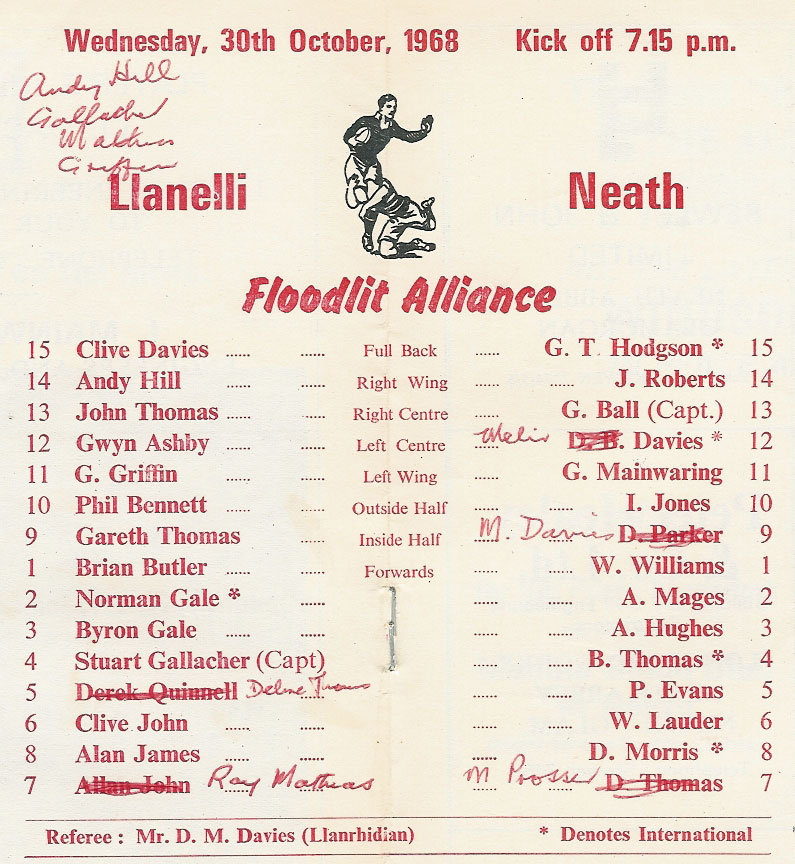 Wednesday, 30th October, 1968 Kick off 7.15 p.m.
Andy Hill
Gallacher
Mathias
Griffin
Llanelli Neath
Floodlit Alliance
15 Clive Davies ...... ...... Full Back ...... G. T. Hodgson * 15
14 Andy Hill ...... ...... Right Wing ...... ...... J. Roberts 14
13 John Thomas ...... ...... Right Centre ...... G. Ball (Capt.) 13
12 Gwyn Ashby ...... ...... Left Centre ...... D. B. Davies * 12
11 G. Griffin ...... ...... Left Wing ...... G. Mainwaring 11
10 Phil Bennett ...... ...... Outside Half ...... ...... I. Jones 10
9 Gareth Thomas ...... Inside Half ...... M. Davies D. Parker 9
1 Brian Butler ...... ...... Forwards ...... ...... W. Williams 1
2 Norman Gale * ...... ...... ...... A. Mages 2
3 Byron Gale ...... ...... ...... ...... A. Hughes 3
4 Stuart Gallacher (Capt) ...... ...... B. Thomas * 4
5 Derek Quinnell ...... ...... ...... P. Evans 5
6 Clive John ...... ...... ...... ...... W. Lauder 6
8 Alan James ...... ...... ...... D. Morris * 8
7 Allan John Ray Mathias ...... ...... M Prosser D Thomas 7
Referee : Mr. D. M. Davies (Llanrhidian) * Denotes International